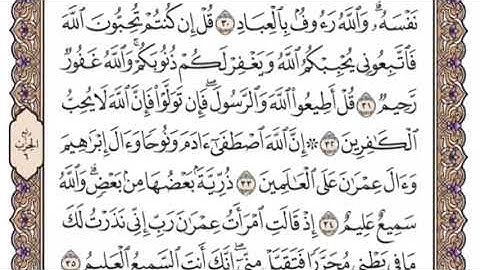 نَفْسَهُۥۗ وَٱللَّهُ رَءُوفُۢ بِٱلْعِبَادِ ٣٠ قُلْ إِن كُنتُمْ تُحِبُّونَ ٱللَّهَ
فَٱتَّبِعُونِى يُحْبِبْكُمُ ٱللَّهُ وَيَغْفِرْ لَكُمْ ذُنُوبَكُمْۗ وَٱللَّهُ غَفُورٌ
رَّحِيمٌ ٣١ قُلْ أَطِيعُوا۟ ٱللَّهَ وَٱلرَّسُولَۖ فَإِن تَوَلَّوْا۟ فَإِنَّ ٱللَّهَ لَا يُحِبُّ
ٱلْكَٰفِرِينَ ٣٢ ۞ إِنَّ ٱللَّهَ ٱصْطَفَىٰٓ ءَادَمَ وَنُوحًا وَءَالَ إِبْرَٰهِيمَ
وَءَالَ عِمْرَٰنَ عَلَى ٱلْعَٰلَمِينَ ٣٣ ذُرِّيَّةَۢ بَعْضُهَا مِنۢ بَعْضٍۗ وَٱللَّهُ
سَمِيعٌ عَلِيمٌ ٣٤ إِذْ قَالَتِ ٱمْرَأَتُ عِمْرَٰنَ رَبِّ إِنِّى نَذَرْتُ لَكَ
مَا فِى بَطْنِى مُحَرَّرًا فَتَقَبَّلْ مِنِّىٓۖ إِنَّكَ أَنتَ ٱلسَّمِيعُ ٱلْعَلِيمُ ٣٥
ربع
الحزب
٦